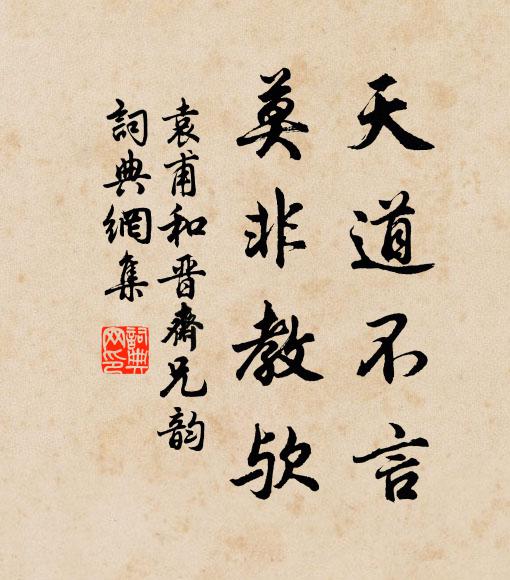 天道不言
莫非教欤
袁甫和晋斋兄韵
詞典網集
詞典
网印